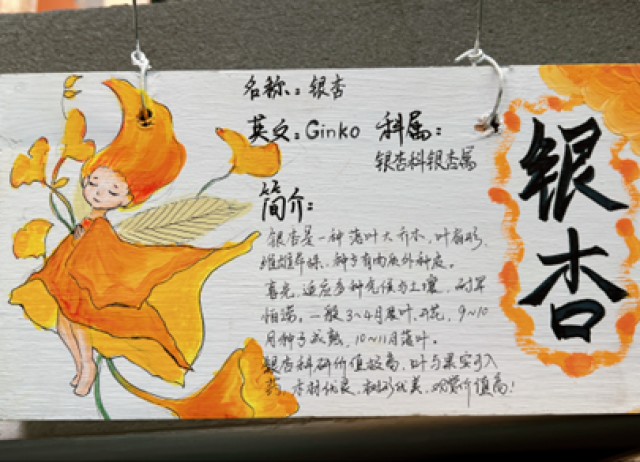 名称：银杏
英文：Ginko 科属：
银杏科银杏属
简介：
银杏是一种落叶大乔木，叶扇形，
雌雄异株，种子有肉质外种皮。
喜光，适应多种气候与土壤，耐旱
怕涝。一般3~4月展叶、开花，9~10
月种子成熟，10~11月落叶。
银杏科研价值极高，叶与果实可入
药，木材优良，树形优美，观赏价值高！
银杏